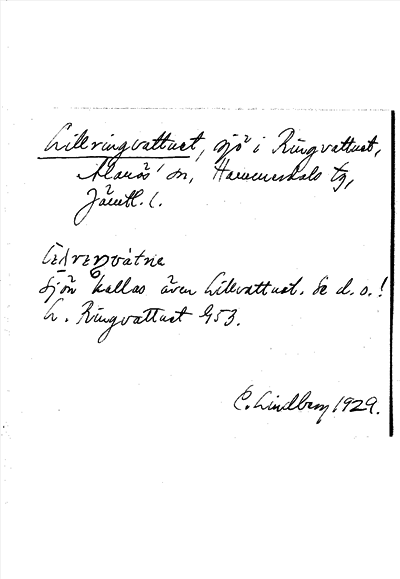 Lillringvattnet, sjö i Ringvattnet,
Alanäs' sn, Hammerdals tg,
Jämtl. l.
Sjön kallas även Lillvattnet. Se d. o.!
L. Ringvattnet 953.
C. Lindberg 1929.